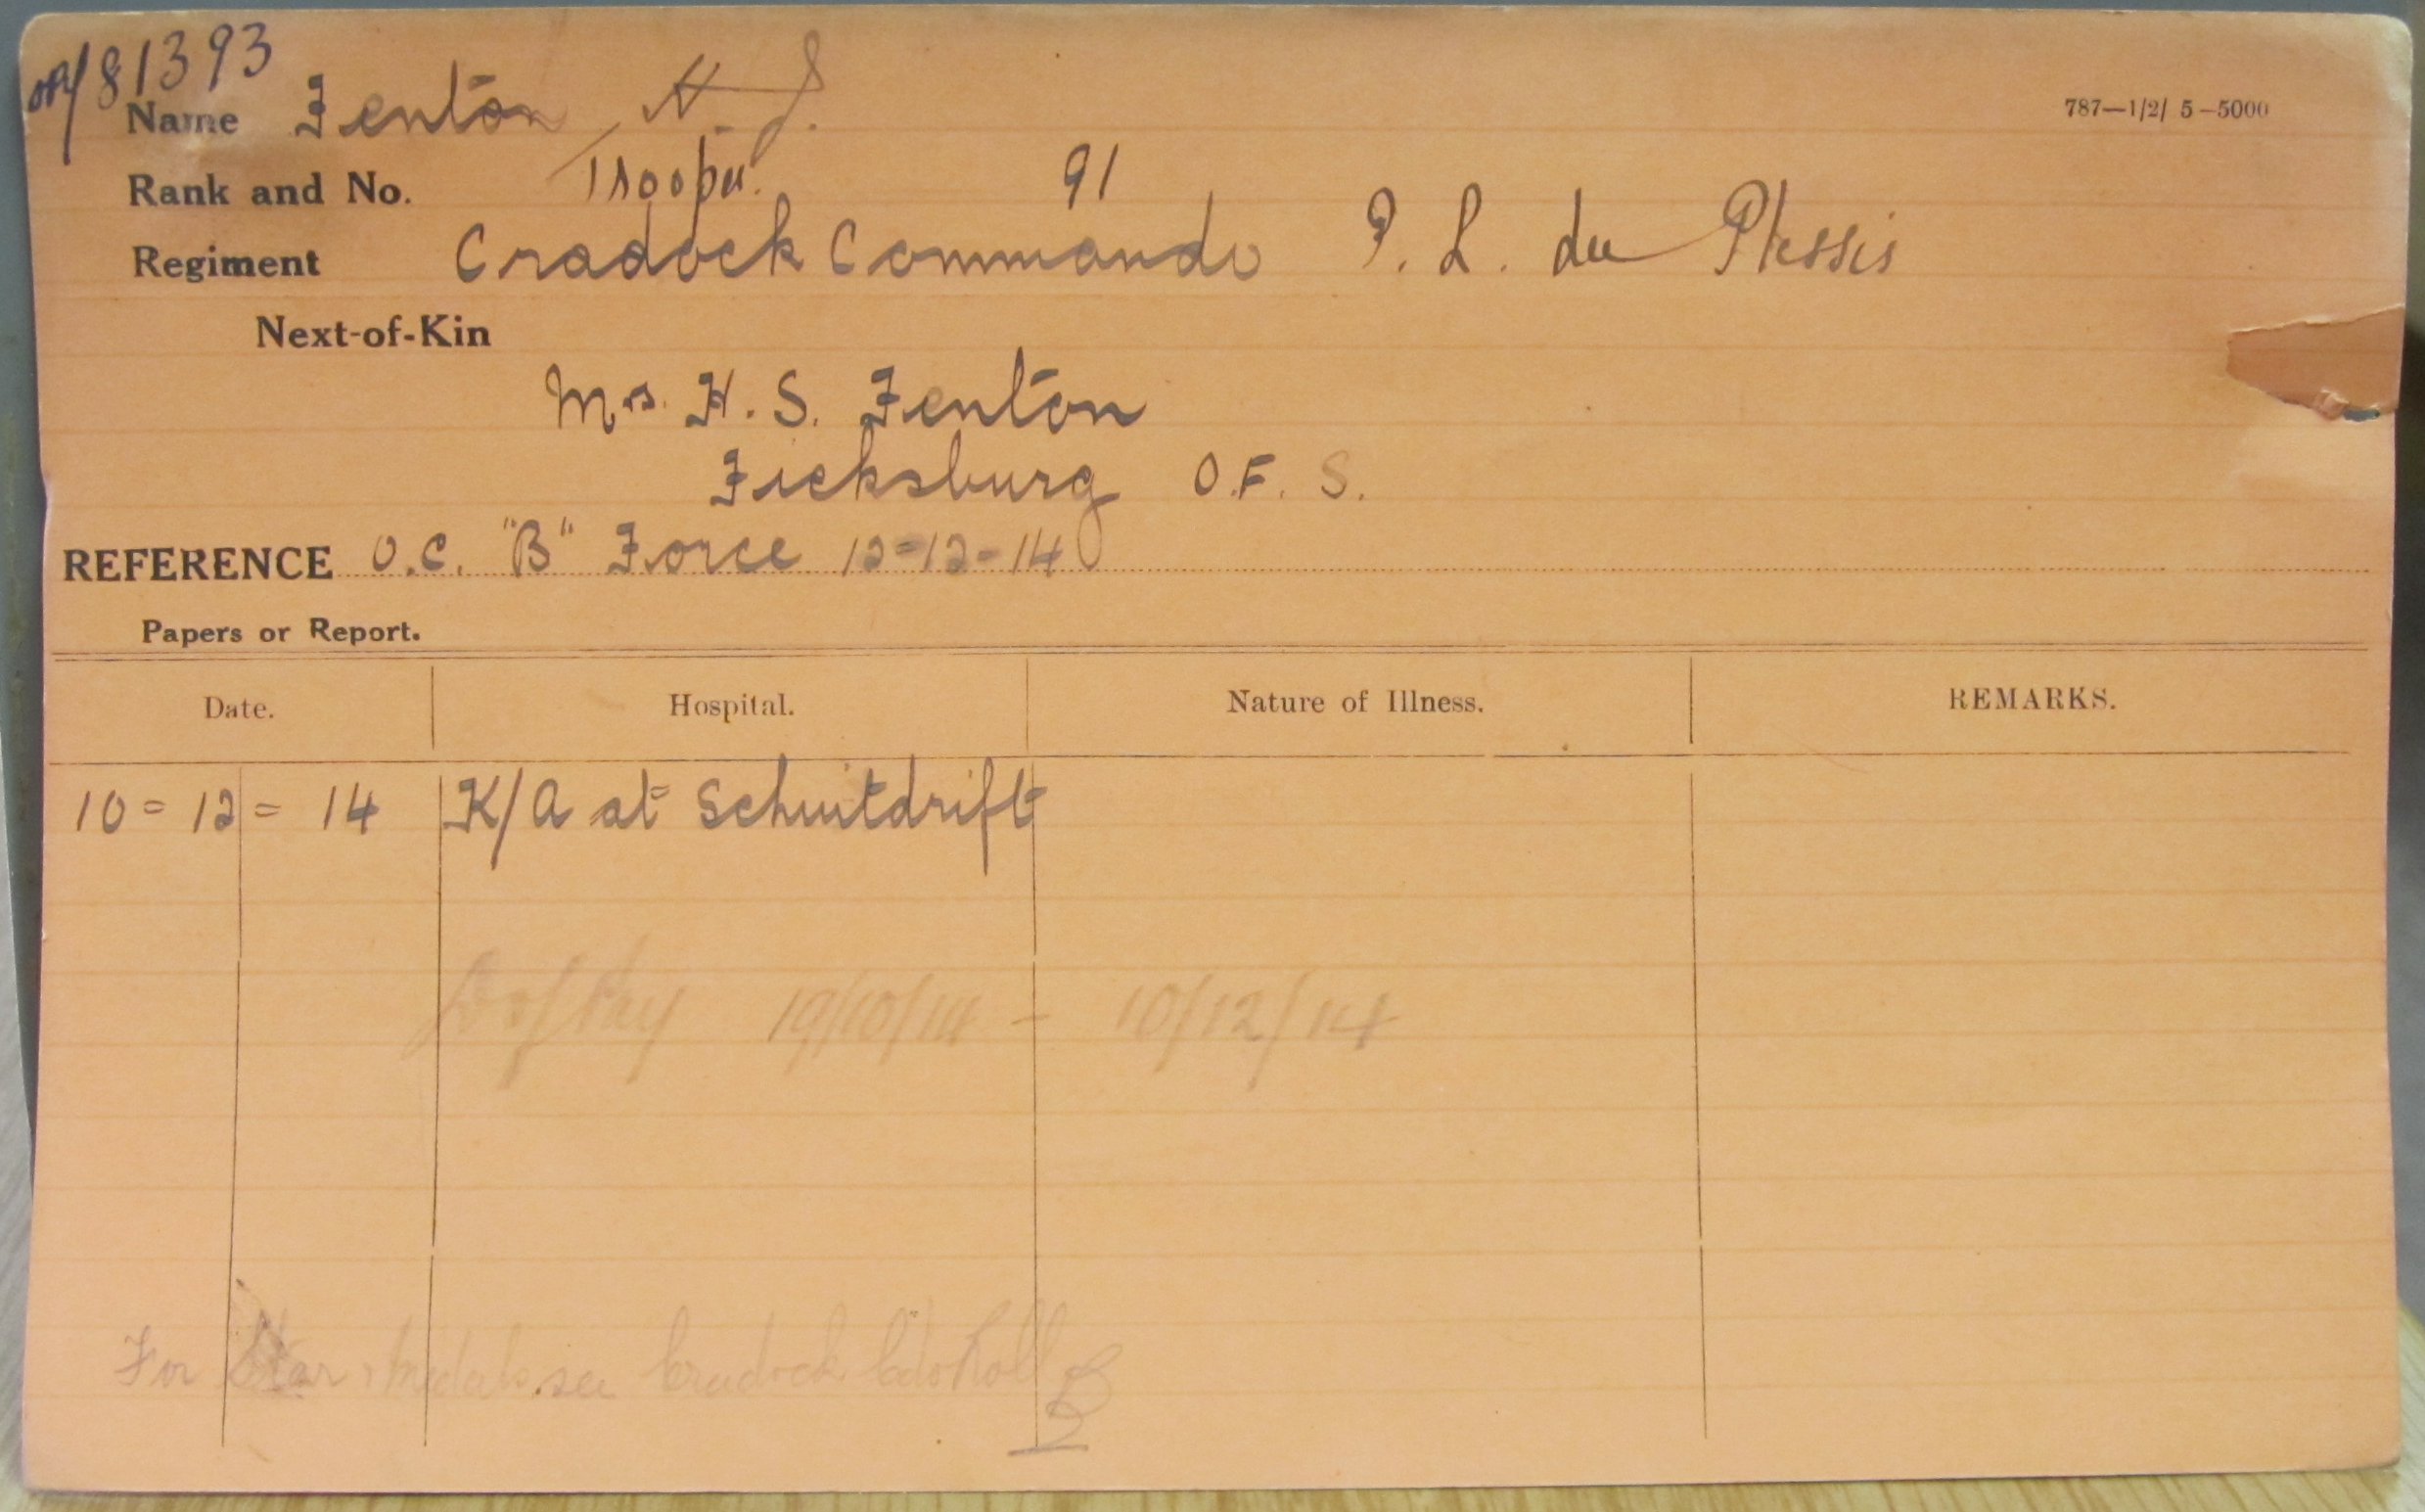 81393
Name Fenton, N. J.
787—1/2/ 5—5000
Rank and No. Trooper. 91
Regiment Cradock Commando P. L. du Plessis
Next-of-Kin
Mrs. H. S. Fenton
Ficksburg O.F.S.
REFERENCE O.C. "B" Force 12=12=14
Papers or Report.
Date. Hospital. Nature of Illness. REMARKS.
10=12=14 K/A at Schuitdrift
Pay 19/10/14 – 10/12/14
For Star medals see Cradock Cdo Roll